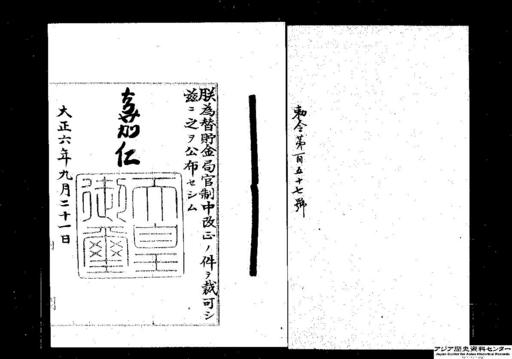 勅令第一百五十七號
朕為替貯金局官制中改正ノ件ヲ裁可シ
茲ニ之ヲ公布セシム
嘉仁
天皇
御璽
大正六年九月二十一日
アジア歴史資料センター
Japan Center for Asian Historical Records